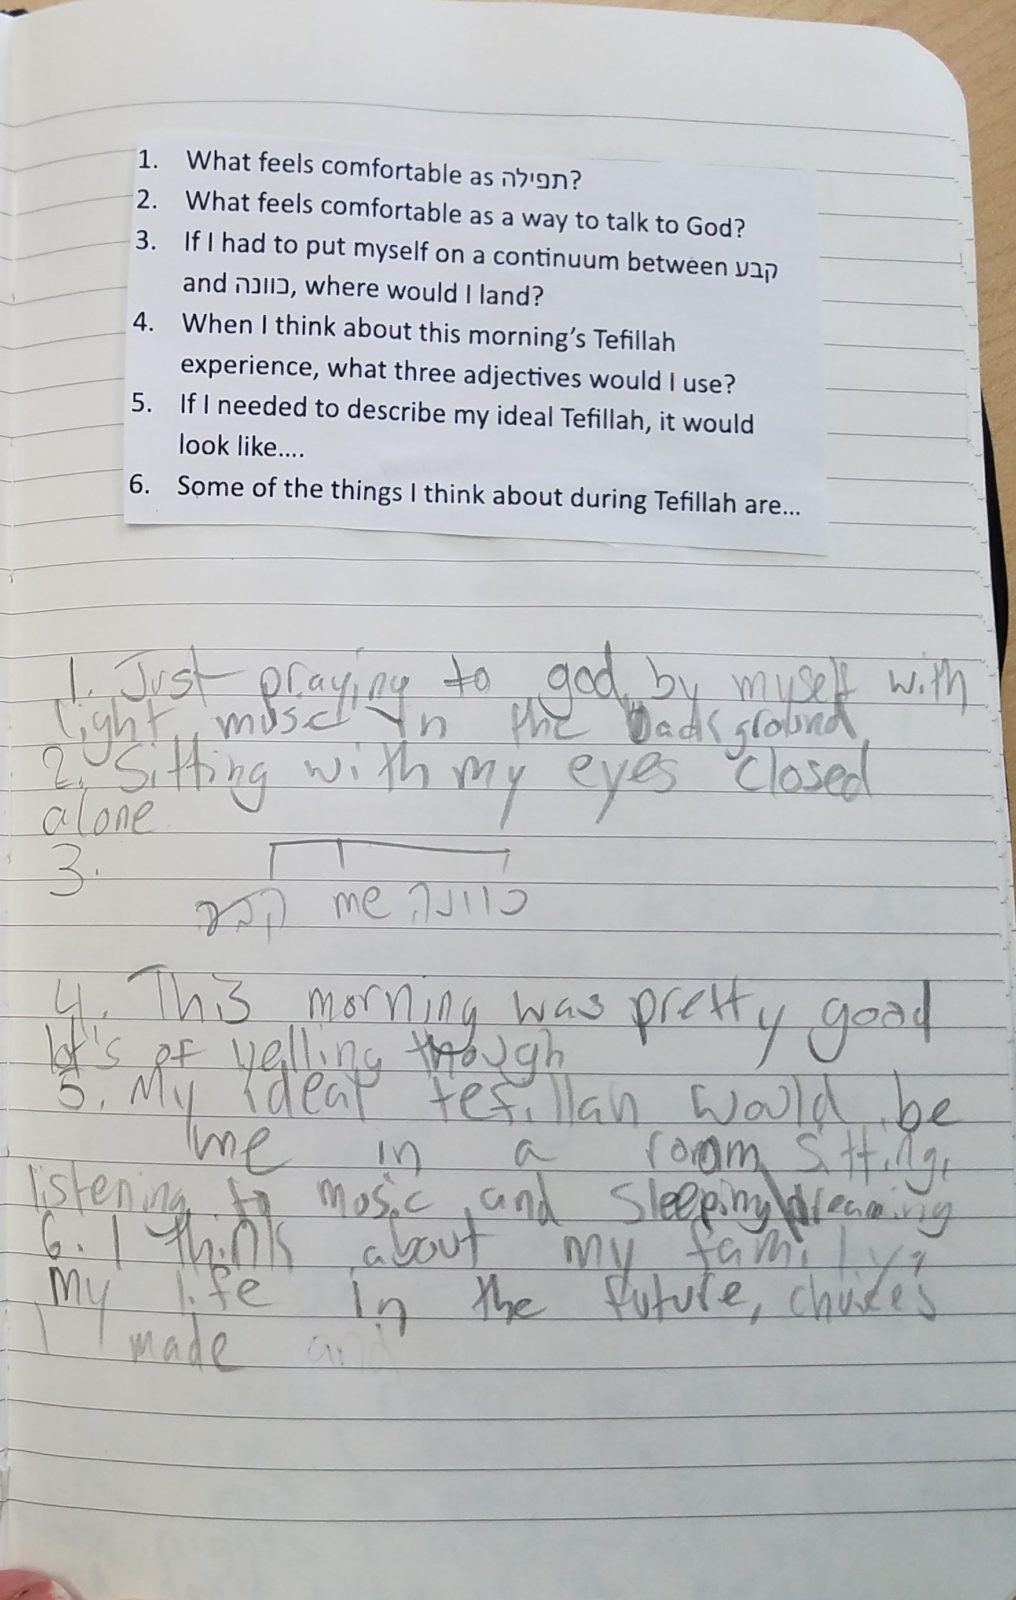 1. What feels comfortable as תפילה?
2. What feels comfortable as a way to talk to God?
3. If I had to put myself on a continuum between קבע
and כוונה, where would I land?
4. When I think about this morning's Tefillah
experience, what three adjectives would I use?
5. If I needed to describe my ideal Tefillah, it would
look like....
6. Some of the things I think about during Tefillah are...
1. Just praying to god by myself with
light musci in the background
2. Sitting with my eyes closed
alone
3.
קבע me כוונה
4. This morning was pretty good
lot's of yelling though
5. My ideal tefillah would be
me in a room sitting,
listening to mosic and sleeping/dreaming
6. I think about my family,
My life in the future, choices
I made and